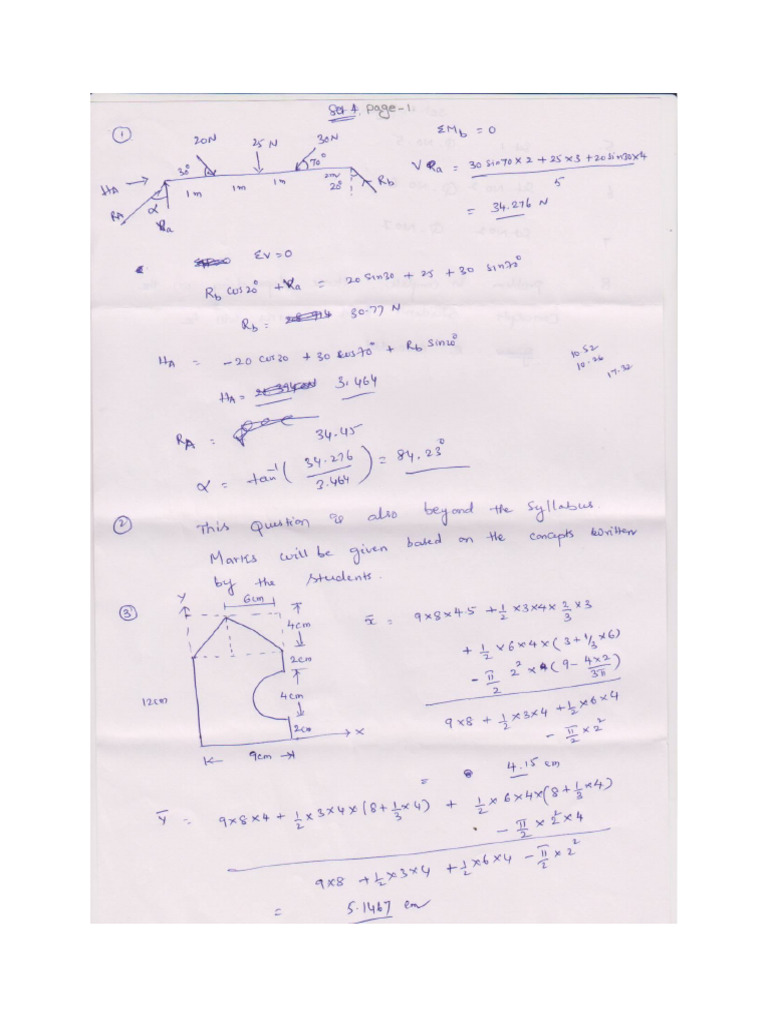 Set 4, page-1
①
20N 25N 30N
30° 70°
HA RA α Va 1m 1m 1m 2m 20° Rb
ΣMb = 0
V Ra = 30 sin70 × 2 + 25 × 3 + 20 sin30 × 4 / 5
= 34.276 N
ΣV = 0
Rb cos20° + Va = 20 sin30 + 25 + 30 sin70°
Rb = 30.77 N
HA = -20 cos30 + 30 cos70° + Rb sin20°
10.52
10.26
17.32
HA = 3.464
RA = 34.45
α = tan⁻¹ (34.276 / 3.464) = 84.23°
② This Question is also beyond the syllabus.
Marks will be given based on the concepts written
by the students.
③
y 6cm
4cm
2cm
4cm
2cm
12cm
9cm x
x̄ = 9×8×4.5 + 1/2 ×3×4× 2/3 ×3
+ 1/2 ×6×4×(3+1/3×6)
- π/2 2² × (9 - 4×2/3π)
9×8 + 1/2×3×4 + 1/2×6×4
- π/2 × 2²
= 4.15 cm
ȳ = 9×8×4 + 1/2×3×4×(8+1/3×4) + 1/2×6×4×(8+1/3×4)
- π/2 × 2² × 4
9×8 + 1/2×3×4 + 1/2×6×4 - π/2 × 2²
= 5.1467 cm